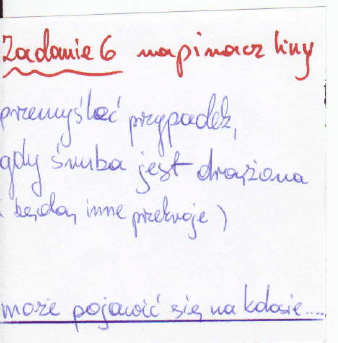 Zadanie 6 napinacz liny
przemyśleć przypadek,
gdy śruba jest drążona
(będą inne przekroje)
może pojawić się na kolosie....